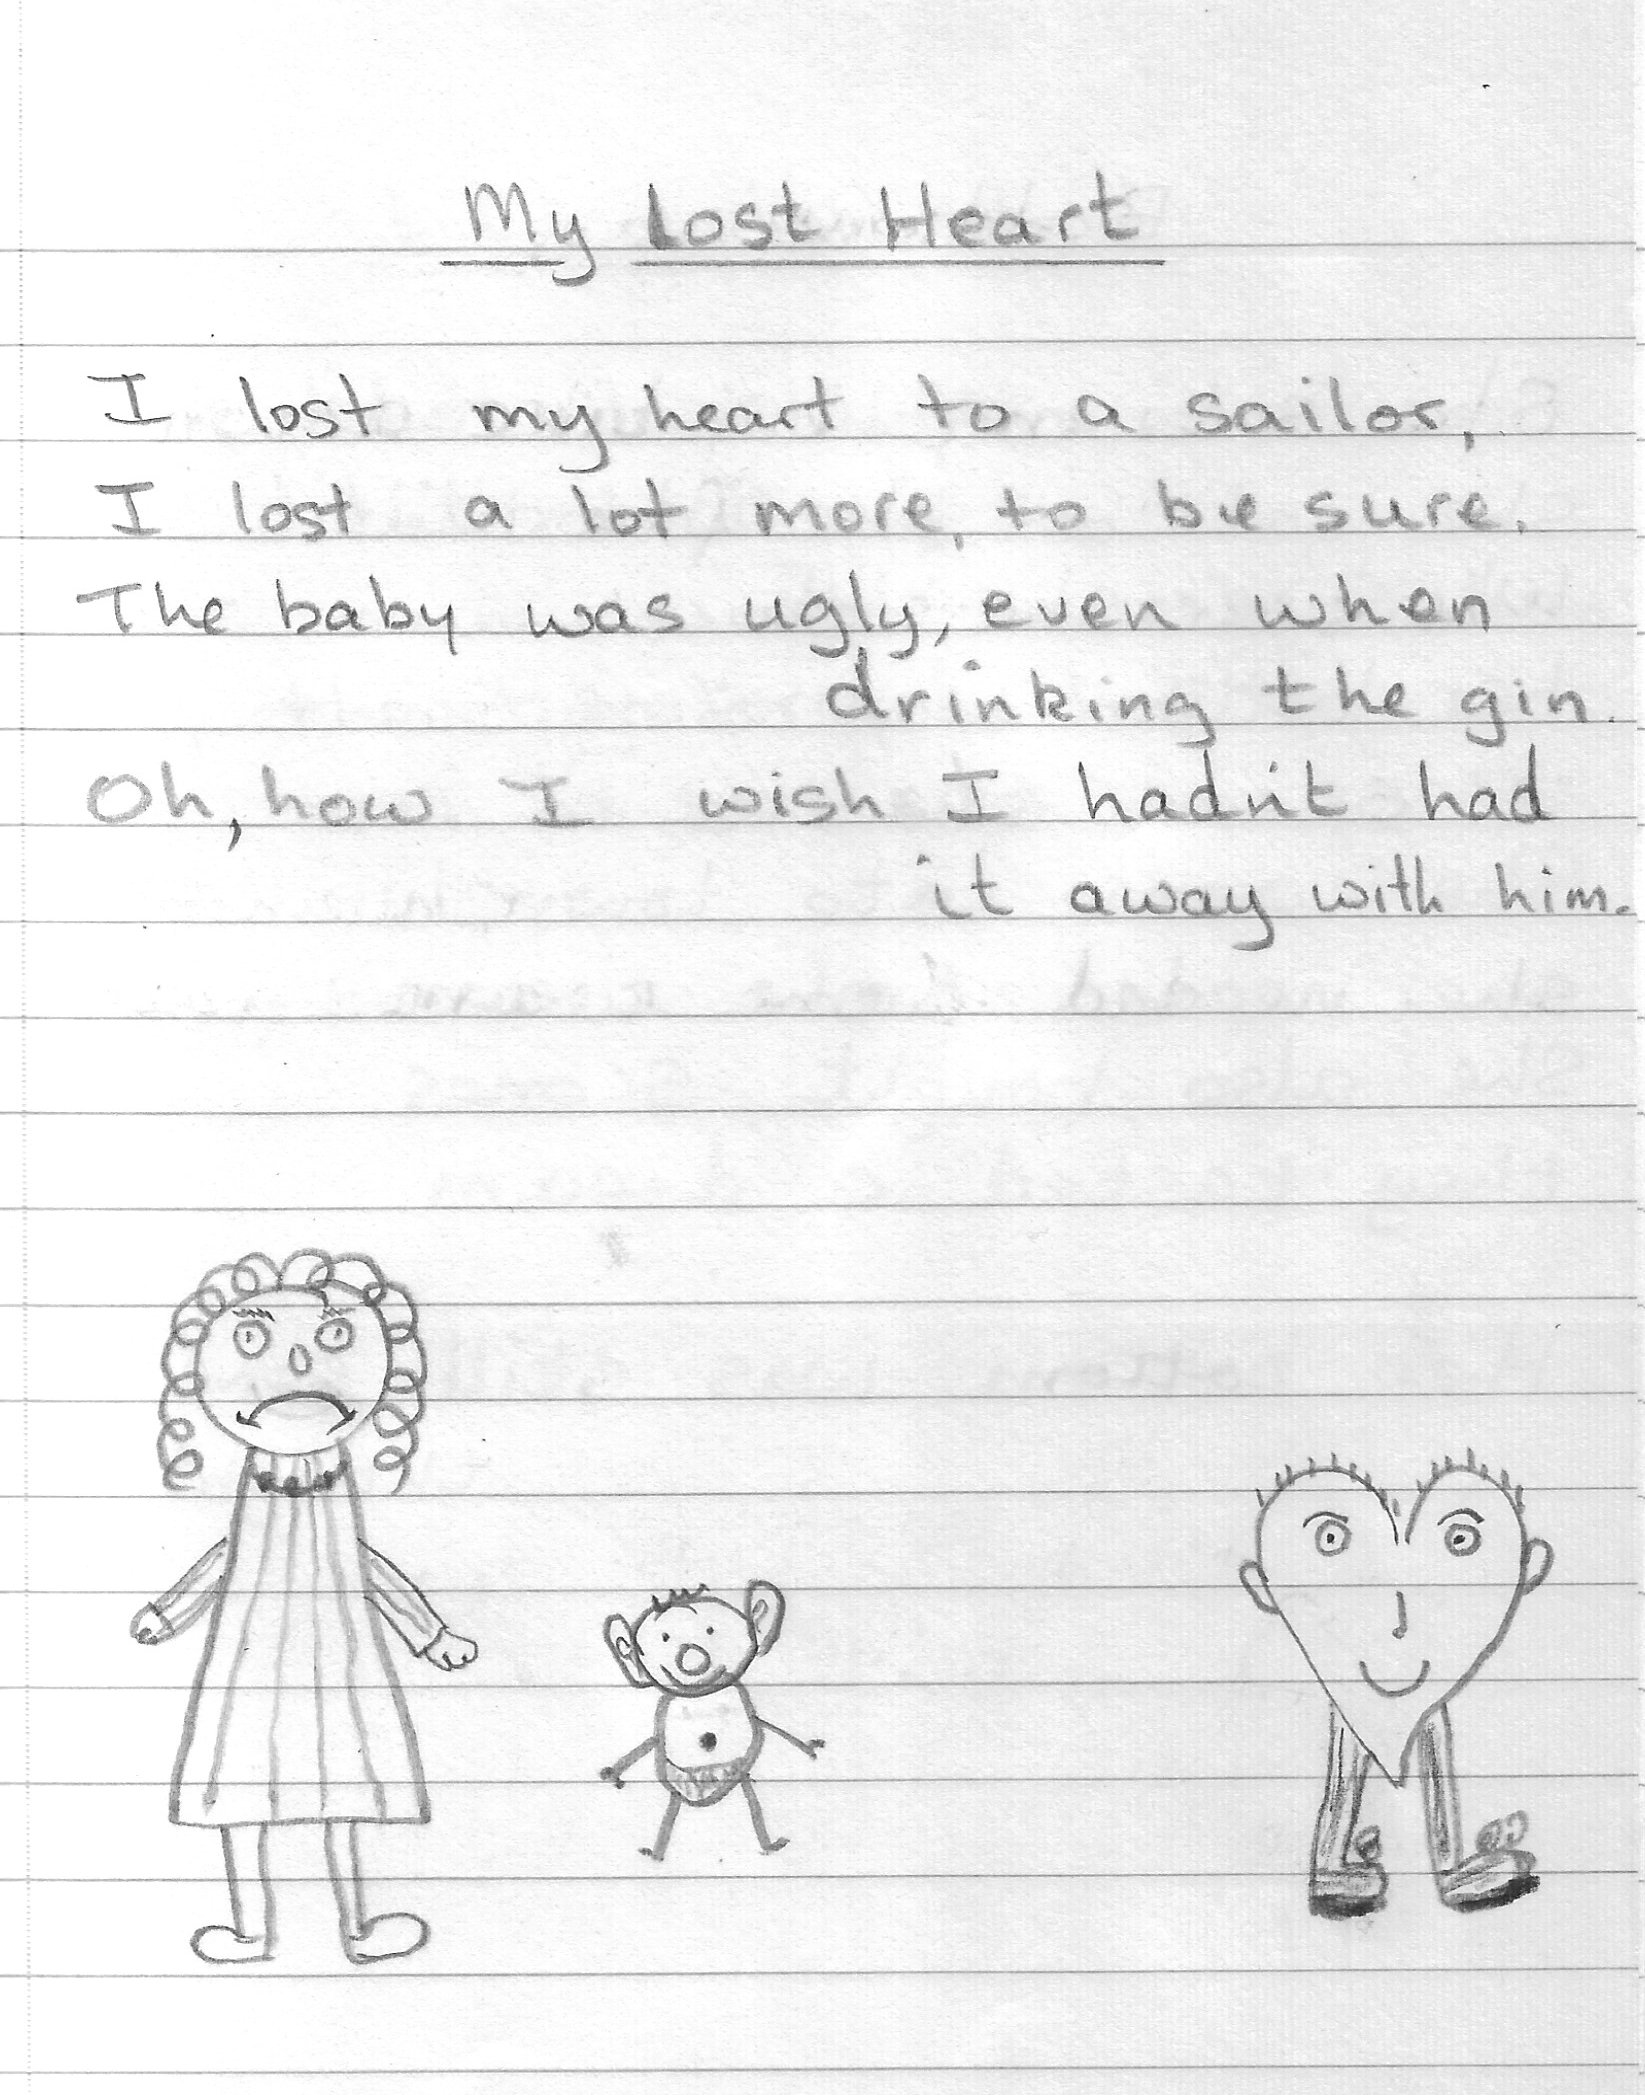 My Lost Heart
I lost my heart to a sailor,
I lost a lot more, to be sure.
The baby was ugly, even when
drinking the gin.
Oh, how I wish I hadn't had
it away with him.